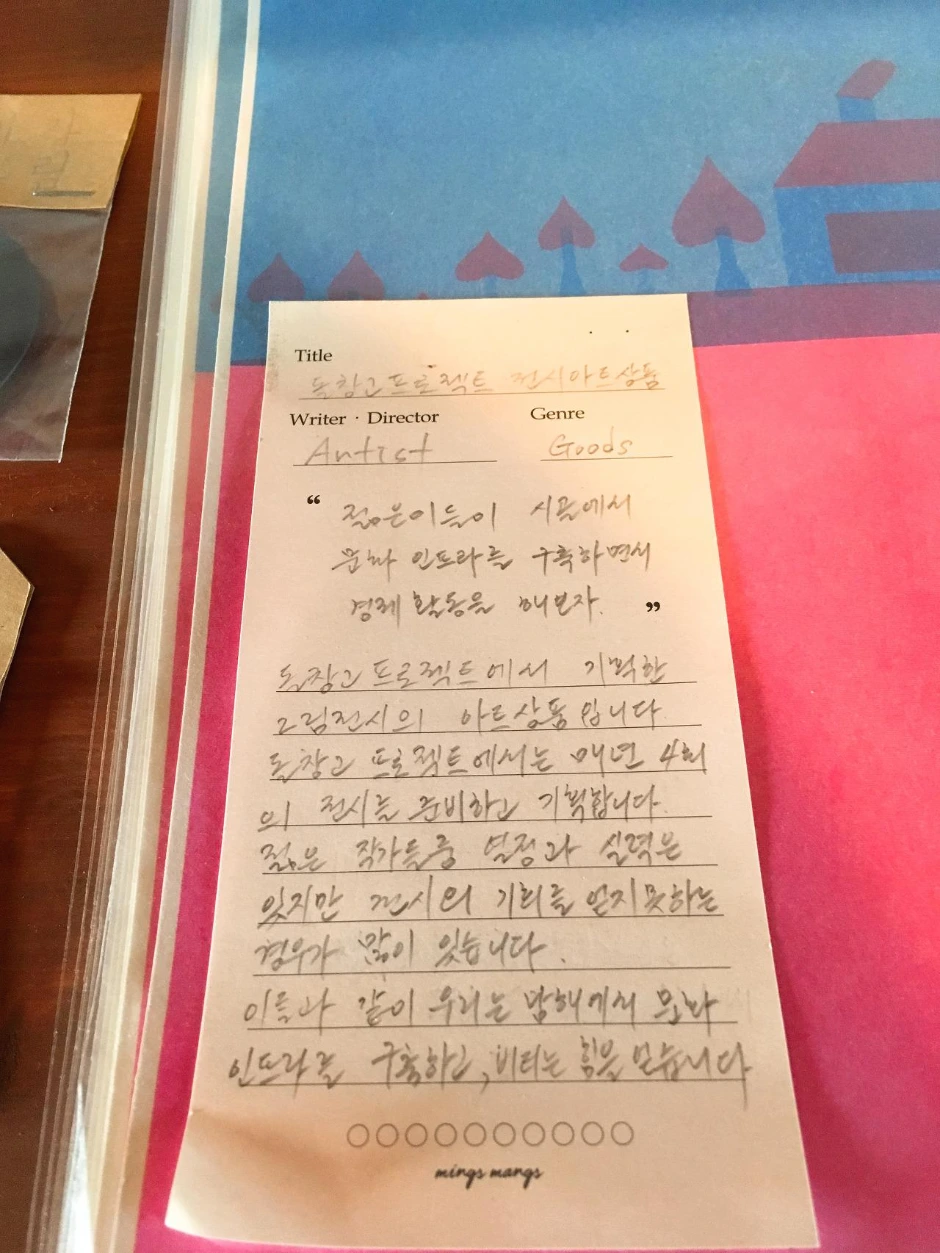 Title
돈창고프로젝트 전시아트상품
Writer · Director
Genre
Artist
Goods
“ 젊은이들이 시골에서
문화 인프라를 구축하면서
경제 활동을 해보자. ”
돈창고프로젝트에서 기획한
그림전시의 아트상품입니다
돈창고 프로젝트에서는 매년 4회
의 전시를 준비하고 기획합니다.
젊은 작가들중 열정과 실력은
있지만 전시의 기회를 얻지못하는
경우가 많이 있습니다.
이들과 같이 우리는 남해에서 문화
인프라를 구축하고, 버티는 힘을 얻습니다
mings mangs